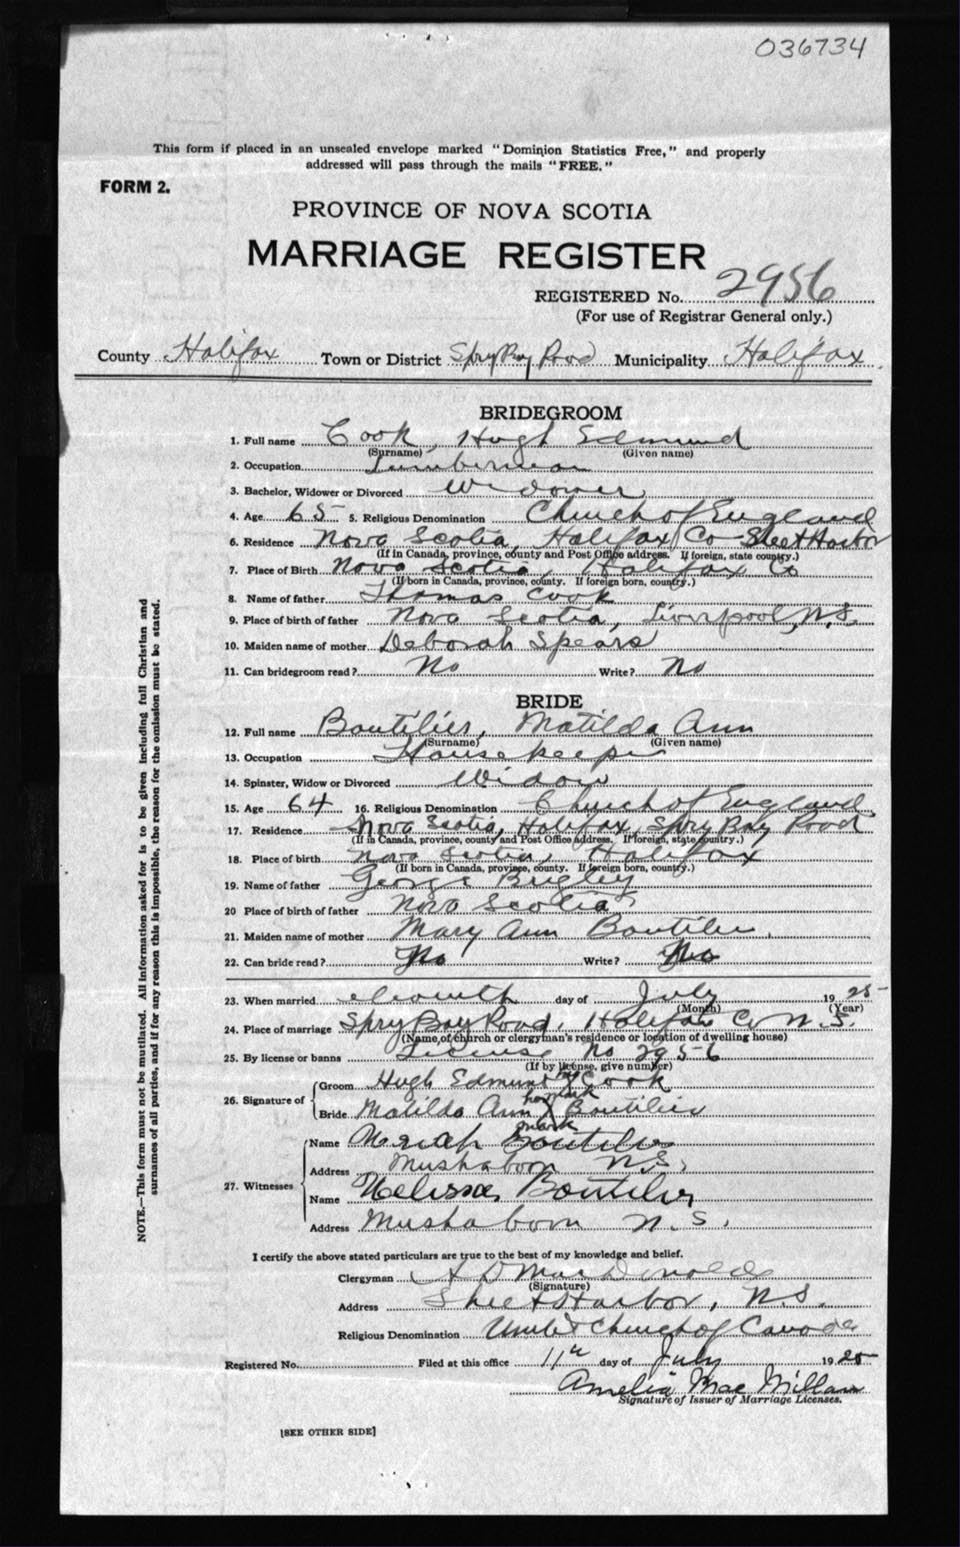 036734
This form if placed in an unsealed envelope marked "Dominion Statistics Free," and properly
addressed will pass through the mails "FREE."
FORM 2.
PROVINCE OF NOVA SCOTIA
MARRIAGE REGISTER
REGISTERED No. 2956
(For use of Registrar General only.)
County Halifax Town or District Spry Bay Road Municipality Halifax
BRIDEGROOM
1. Full name Cook, Hugh Edmund
(Surname) (Given name)
2. Occupation Lumberman
3. Bachelor, Widower or Divorced Widower
4. Age 65 5. Religious Denomination Church of England
6. Residence Nova Scotia, Halifax Co Sheet Harbor
(If in Canada, province, county and Post Office address. If foreign, state country.)
7. Place of Birth Nova Scotia, Halifax Co
(If born in Canada, province, county. If foreign born, country.)
8. Name of father Thomas Cook
9. Place of birth of father Nova Scotia, Liverpool, N.S.
10. Maiden name of mother Deborah Spears
11. Can bridegroom read? No Write? No
BRIDE
12. Full name Boutilier, Matilda Ann
(Surname) (Given name)
13. Occupation Housekeeper
14. Spinster, Widow or Divorced Widow
15. Age 64 16. Religious Denomination Church of England
17. Residence Nova Scotia, Halifax, Spry Bay Road
(If in Canada, province, county and Post Office address. If foreign, state country.)
18. Place of birth Nova Scotia, Halifax
(If born in Canada, province, county. If foreign born, country.)
19. Name of father George
20 Place of birth of father Nova Scotia
21. Maiden name of mother Mary Ann Boutilier
22. Can bride read? No Write? No
23. When married eleventh day of July 1925
(Month) (Year)
24. Place of marriage Spry Bay Road, Halifax Co N.S.
(Name, of church or clergyman's residence or location of dwelling house)
25. By license or banns License No 2956
(If by license, give number)
26. Signature of Groom Hugh Edmund X Cook
her mark
Bride Matilda Ann X Boutilier
mark
27. Witnesses
Name Boutilier
Address Mushaboom N.S.
Name Melissa Boutilier
Address Mushaboom N.S.
I certify the above stated particulars are true to the best of my knowledge and belief.
Clergyman A D MacDonald
(Signature)
Address Sheet Harbor, N.S.
Religious Denomination United Church of Canada
Registered No. Filed at this office 11th day of July 1925
Amelia MacMillan
Signature of Issuer of Marriage Licenses.
[SEE OTHER SIDE]
NOTE.—This form must not be mutilated. All information asked for is to be given including full Christian and
surnames of all parties, and if for any reason this is impossible, the reason for the omission must be stated.